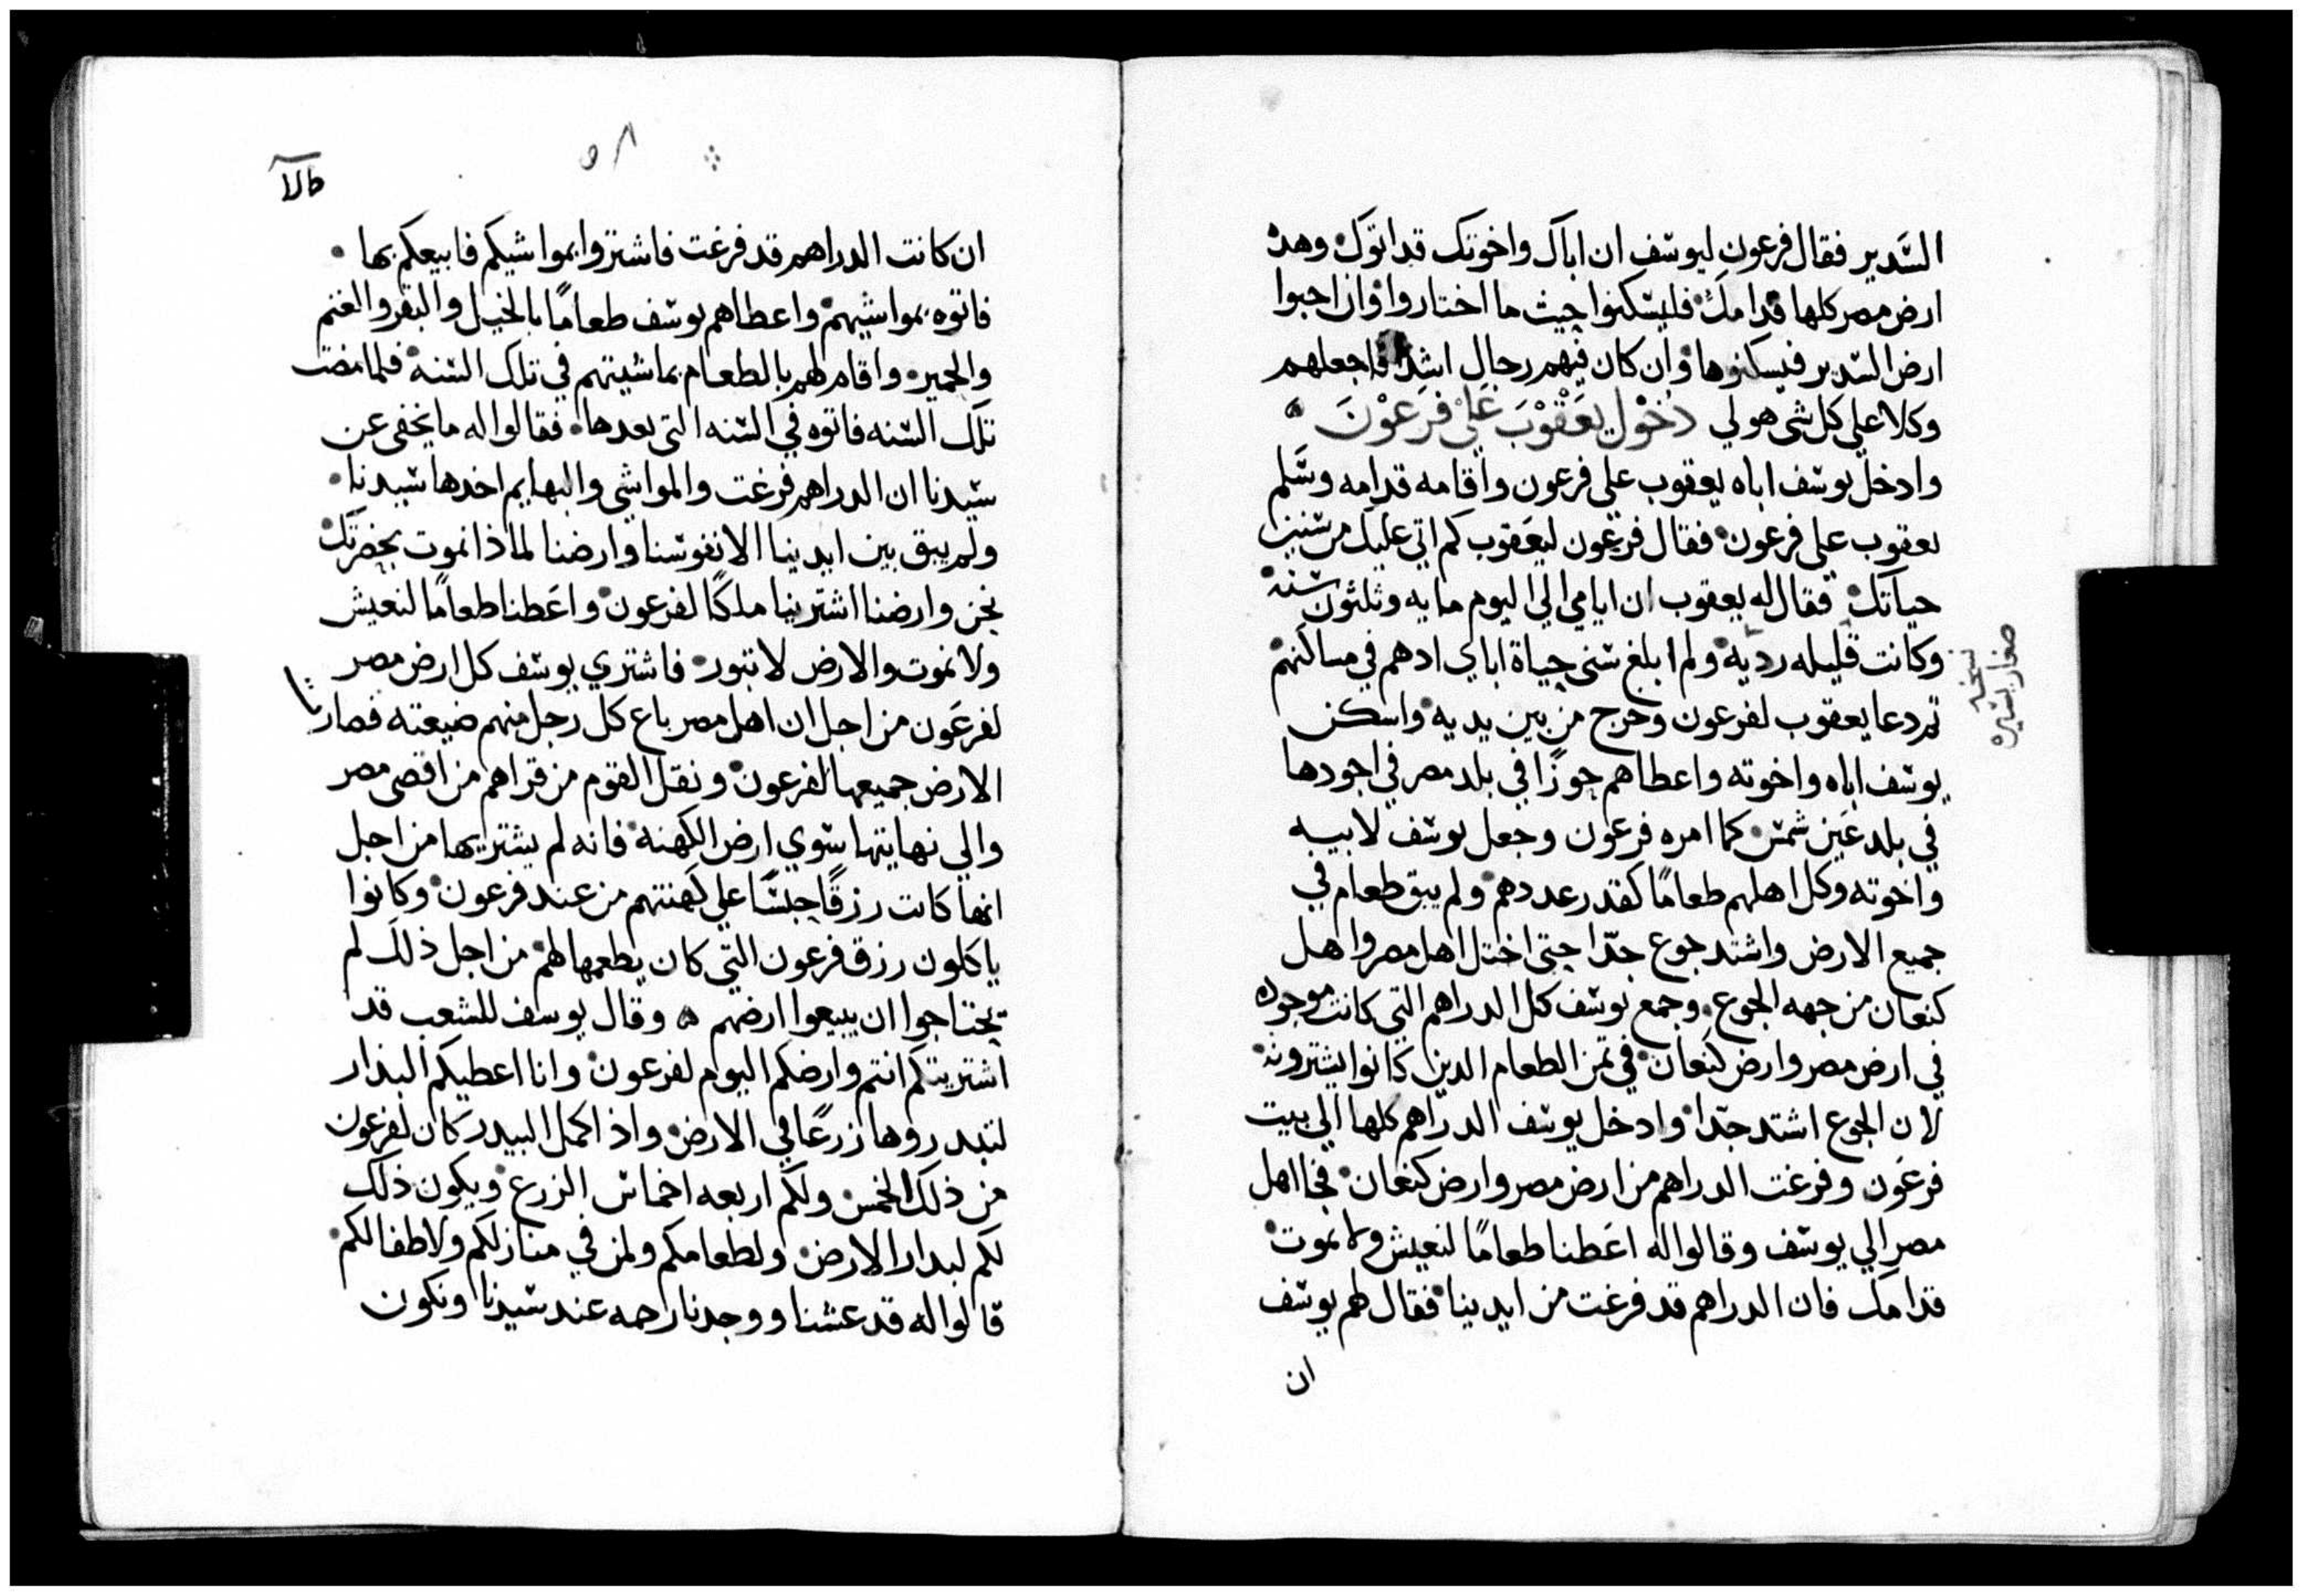 السدير فقال فرعون ليوسف ان اباك واخوتك قد اتوك وهذه
ارض مصر كلها قدامك فليسكنوا حيث ما اختاروا وان احبوا
ارض السدير فيسكنوها وان كان فيهم رجال اشدا فاجعلهم
وكلا علي كل شي هو لي دخول يعقوب علي فرعون
وادخل يوسف اباه يعقوب علي فرعون واقامه قدامه وسلم
يعقوب علي فرعون فقال فرعون ليعقوب كم اتي عليك من سنين
حياتك فقال له يعقوب ان ايامي الي اليوم مايه وثلثون سنه
وكانت قليله رديه ولم ابلغ سني حياة اباي ادهم في مساكنهم
نسخه
صغار يسيره
ثم دعا يعقوب لفرعون وخرج من بين يديه واسكن
يوسف اباه واخوته واعطاهم حوزا في بلد مصر في اجودها
في بلد عين شمس كما امره فرعون وجعل يوسف لابيه
واخوته وكل اهلهم طعاما كقدر عددهم ولم يبق طعام في
جميع الارض واشتد جوع جدا حتي اختل اهل مصر واهل
كنعان من جهه الجوع وجمع يوسف كل الدراهم التي كانت موجوده
في ارض مصر وارض كنعان في ثمن الطعام الذين كانوا يشترونه
لان الجوع اشتد جدا وادخل يوسف الدراهم كلها الي بيت
فرعون وفرغت الدراهم من ارض مصر وارض كنعان فجا اهل
مصر الي يوسف وقالوا له اعطنا طعاما لنعيش ولا نموت
قدامك فان الدراهم قد فرغت من ايدينا فقال لهم يوسف
ان
٥٨
ان كانت الدراهم قد فرغت فاشتروا بمواشيكم فابيعكم بها
فاتوه بمواشيهم واعطاهم يوسف طعاما بالخيل والبقر والغنم
والحمير واقام لهم بالطعام بماشيتهم في تلك السنه فلما مضت
تلك السنه فاتوه في السنه التي بعدها فقالوا له ما يخفي عن
سيدنا ان الدراهم فرغت والمواشي والبهايم اخدها سيدنا
ولم يبق بين ايدينا الا نفوسنا وارضنا لماذا نموت بحضرتك
نحن وارضنا اشترينا ملكا لفرعون واعطنا طعاما لنعيش
ولا نموت والارض لا تبور فاشتري يوسف كل ارض مصر
لفرعون من اجل ان اهل مصر باع كل رجل منهم ضيعته فصارت
الارض جميعها لفرعون ونقل القوم من قراهم من اقصي مصر
والي نهايتها سوي ارض الكهنه فانه لم يشتريها من اجل
انها كانت رزقا حبسا علي كهنتهم من عند فرعون وكانوا
ياكلون رزق فرعون التي كان يطعمها لهم من اجل ذلك لم
يحتاجوا ان يبيعوا ارضهم ه وقال يوسف للشعب قد
اشتريتكم انتم وارضكم اليوم لفرعون وانا اعطيكم البدار
لتبدروها زرعا في الارض واذا كمل البيدر كان لفرعون
من ذلك الخمس ولكم اربعه اخماس الزرع ويكون ذلك
لكم لبدار الارض ولطعامكم ولمن في منازلكم ولاطفالكم
قالوا له قد عشنا ووجدنا رحمه عند سيدنا ونكون